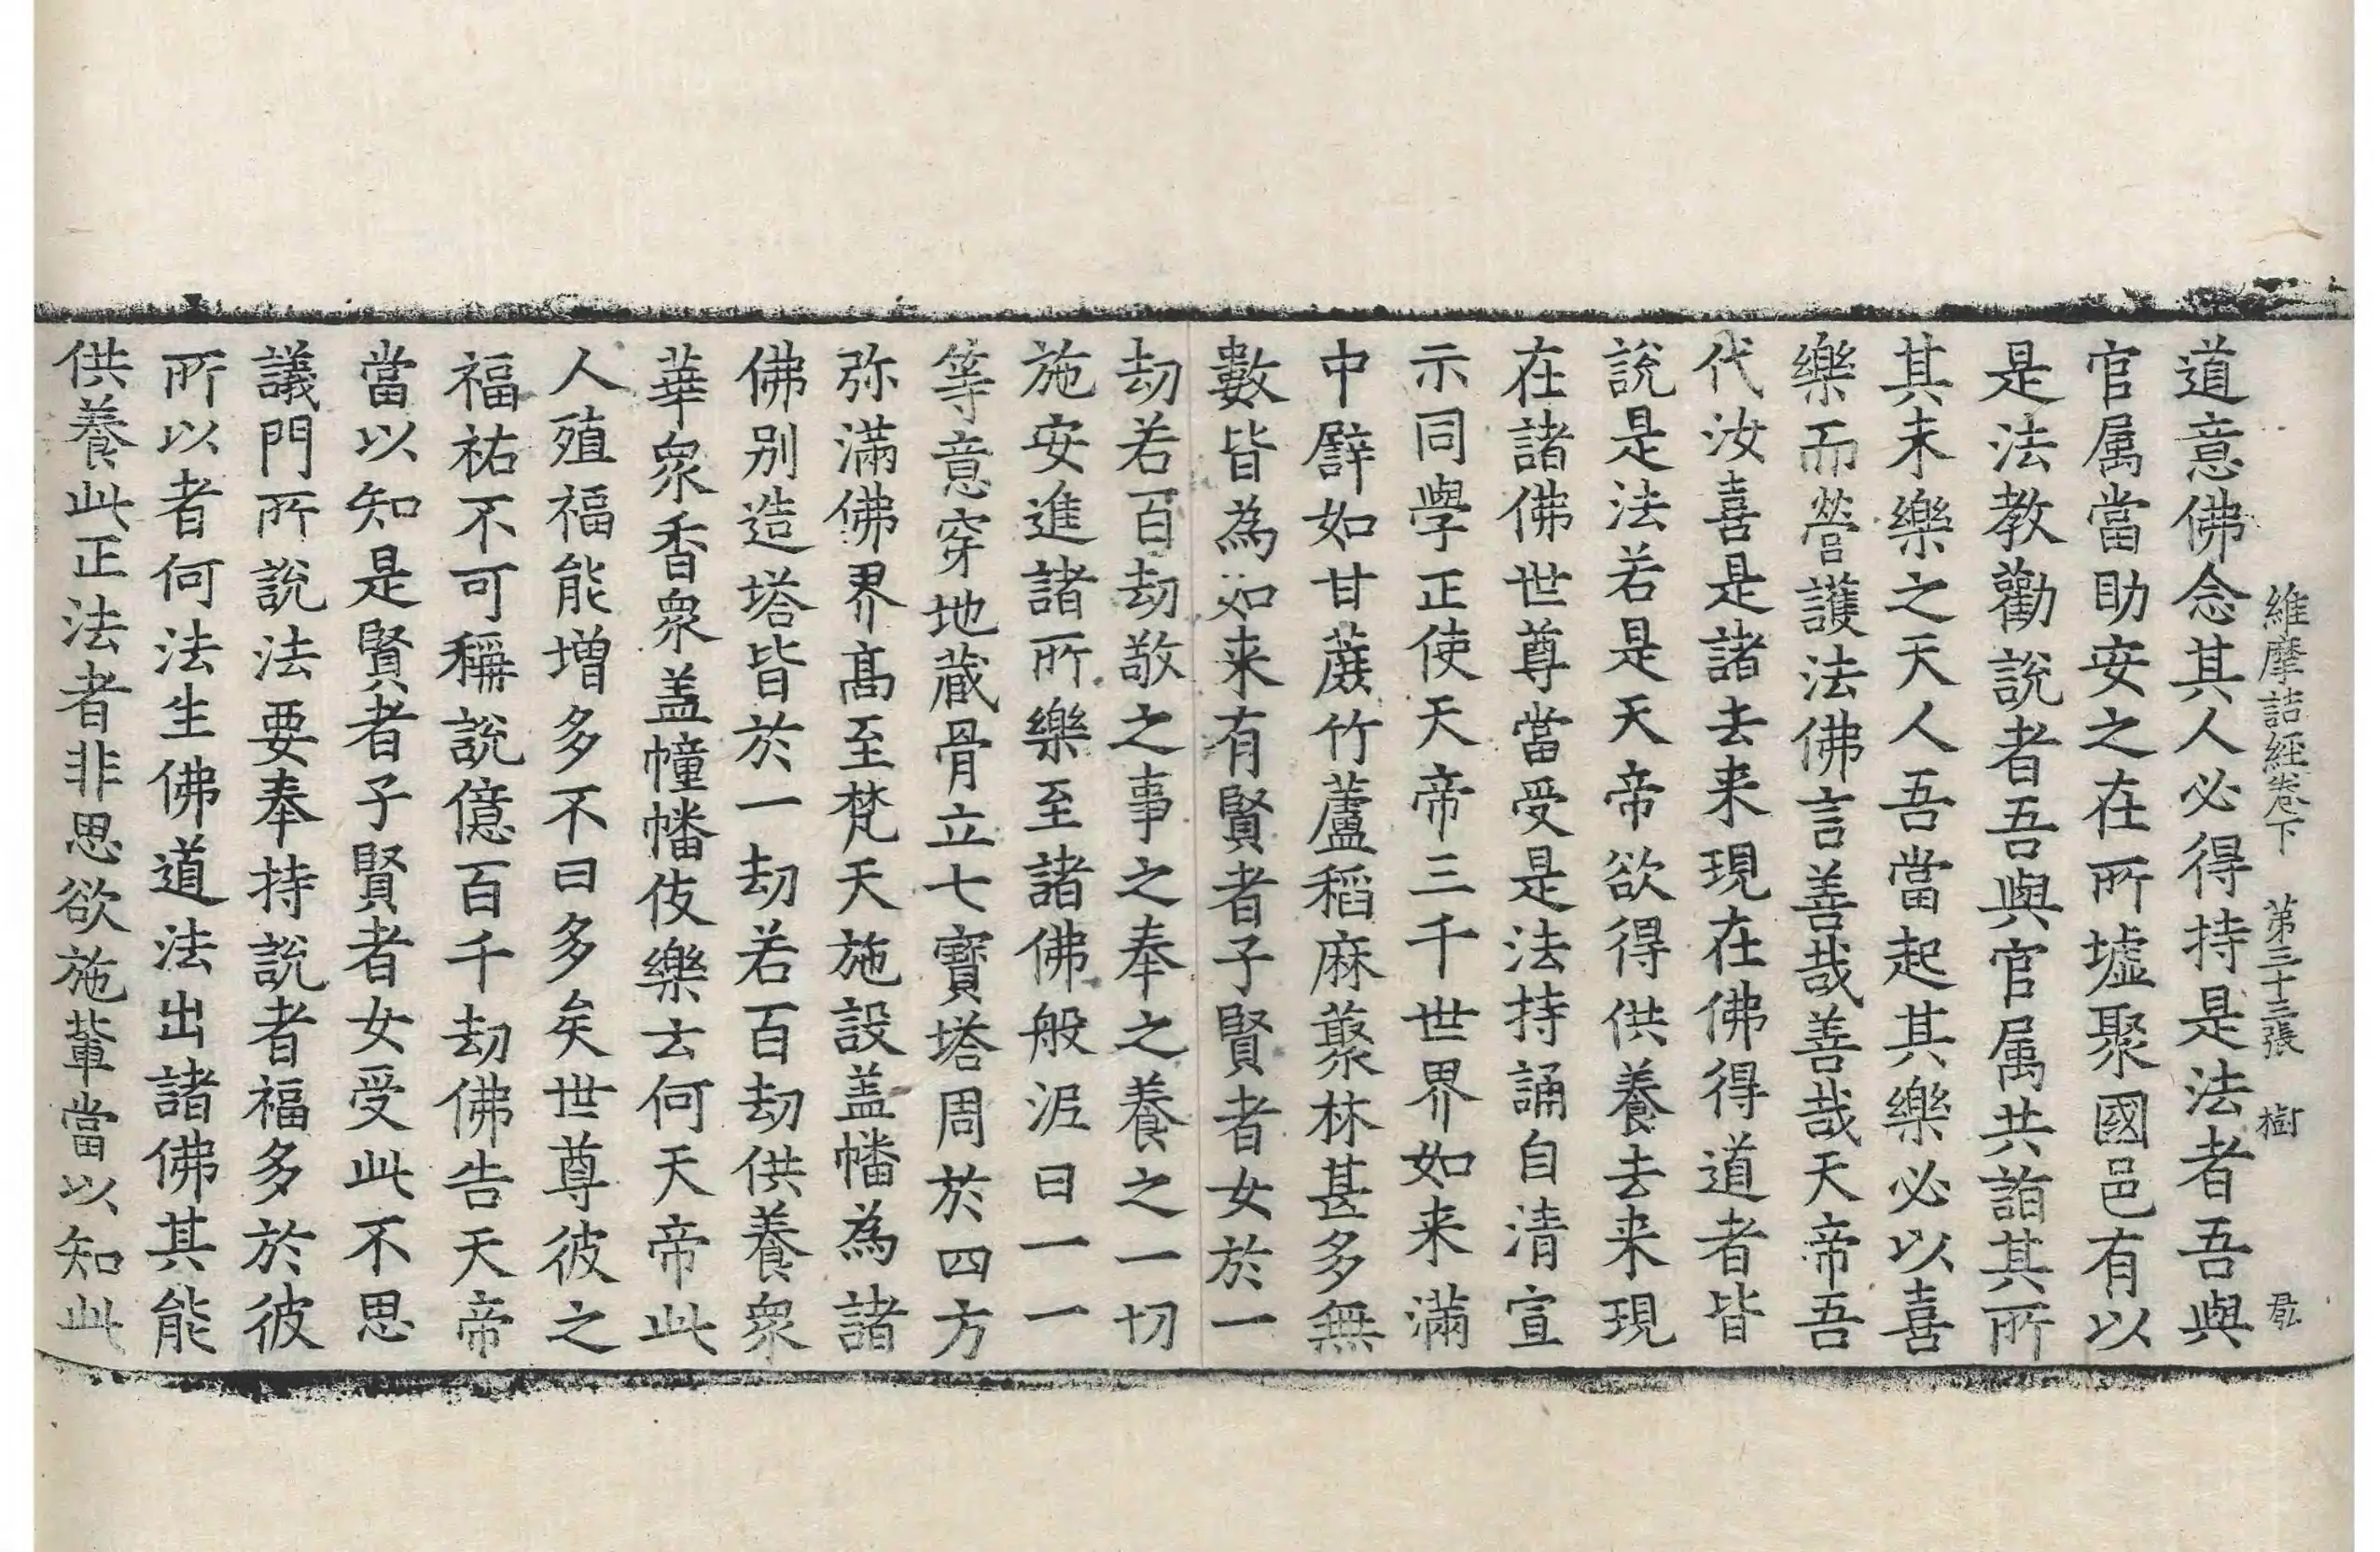 維摩詰經卷下 第三十三張 樹
道意佛念其人必得持是法者吾與
官属當助安之在所墟聚國邑有以
是法教勸說者吾與官属共詣其所
其未樂之天人吾當起其樂必以喜
樂而營護法佛言善哉善哉天帝吾
代汝喜是諸去来現在佛得道者皆
說是法若是天帝欲得供養去来現
在諸佛世尊當受是法持誦自清宣
示同學正使天帝三千世界如来滿
中譬如甘蔗竹蘆稻麻藂林甚多無
數皆為如来有賢者子賢者女於一
劫若百劫敬之事之奉之養之一切
施安進諸所樂至諸佛般泥曰一一
等意穿地蔵骨立七寶塔周於四方
弥滿佛界髙至梵天施設盖幡為諸
佛别造塔皆於一劫若百劫供養衆
華衆香衆盖幢幡伎樂云何天帝此
人殖福能增多不曰多矣世尊彼之
福祐不可稱說億百千劫佛告天帝
當以知是賢者子賢者女受此不思
議門所說法要奉持說者福多於彼
所以者何法生佛道法出諸佛其能
供養此正法者非思欲施輩當以知此